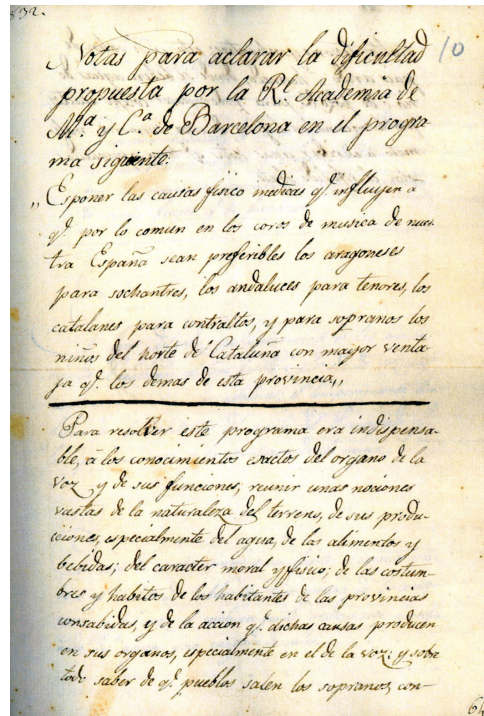 832.
10
Notas para aclarar la dificultad
propuesta por la Rl. Academia de
Ma. y Ca. de Barcelona en el progra
ma siguiente.
„Esponer las causas fisico medicas qe. influyen a
qe. por lo comun en los coros de musica de nues-
tra España sean preferibles los aragoneses
para sochantres, los andaluces para tenores, los
catalanes para contraltos, y para sopranos los
niños del norte de Cataluña con mayor venta-
ja qe. los demas de esta provincia„
Para resolver este programa era indispensa-
ble, a los conocimientos esactos del organo de la
voz y de sus funciones, reunir unas nociones
vastas de la naturaleza del terreno, de sus produ-
cciones, especialmente del agua, de las alimentos y
bebidas; del caracter moral y fisico; de las costum-
bres y habitos de los habitantes de las provincias
consabidas, y de la accion qe. dichas causas producen
en sus organos, especialmente en el de la voz: y sobre
todo saber de qe. pueblos salen los sopranos, con-